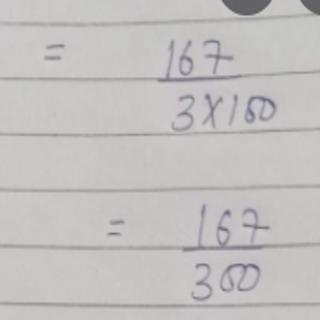 = 167
3×100
= 167
300